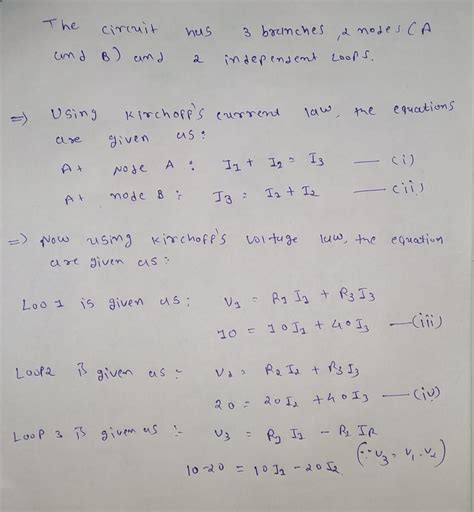 The circuit has 3 branches, 2 nodes (A
and B) and 2 independent Loops.
=> Using Kirchoff's current law, the equations
are given as:
At Node A : I1 + I2 = I3 — (i)
At node B :- I3 = I1 + I2 — (ii)
=> Now using Kirchoff's voltage law, the equation
are given as:-
Loo 1 is given as: V1 = R1 I1 + R3 I3
10 = 10 I1 + 40 I3 — (iii)
Loop2 is given as :- V2 = R2 I2 + R3 I3
20 = 20 I2 + 40 I3 — (iv)
Loop 3 is given as :- V3 = R1 I1 - R2 I2
10-20 = 10 I1 - 20 I2 (∵ V3 = V1 - V2)